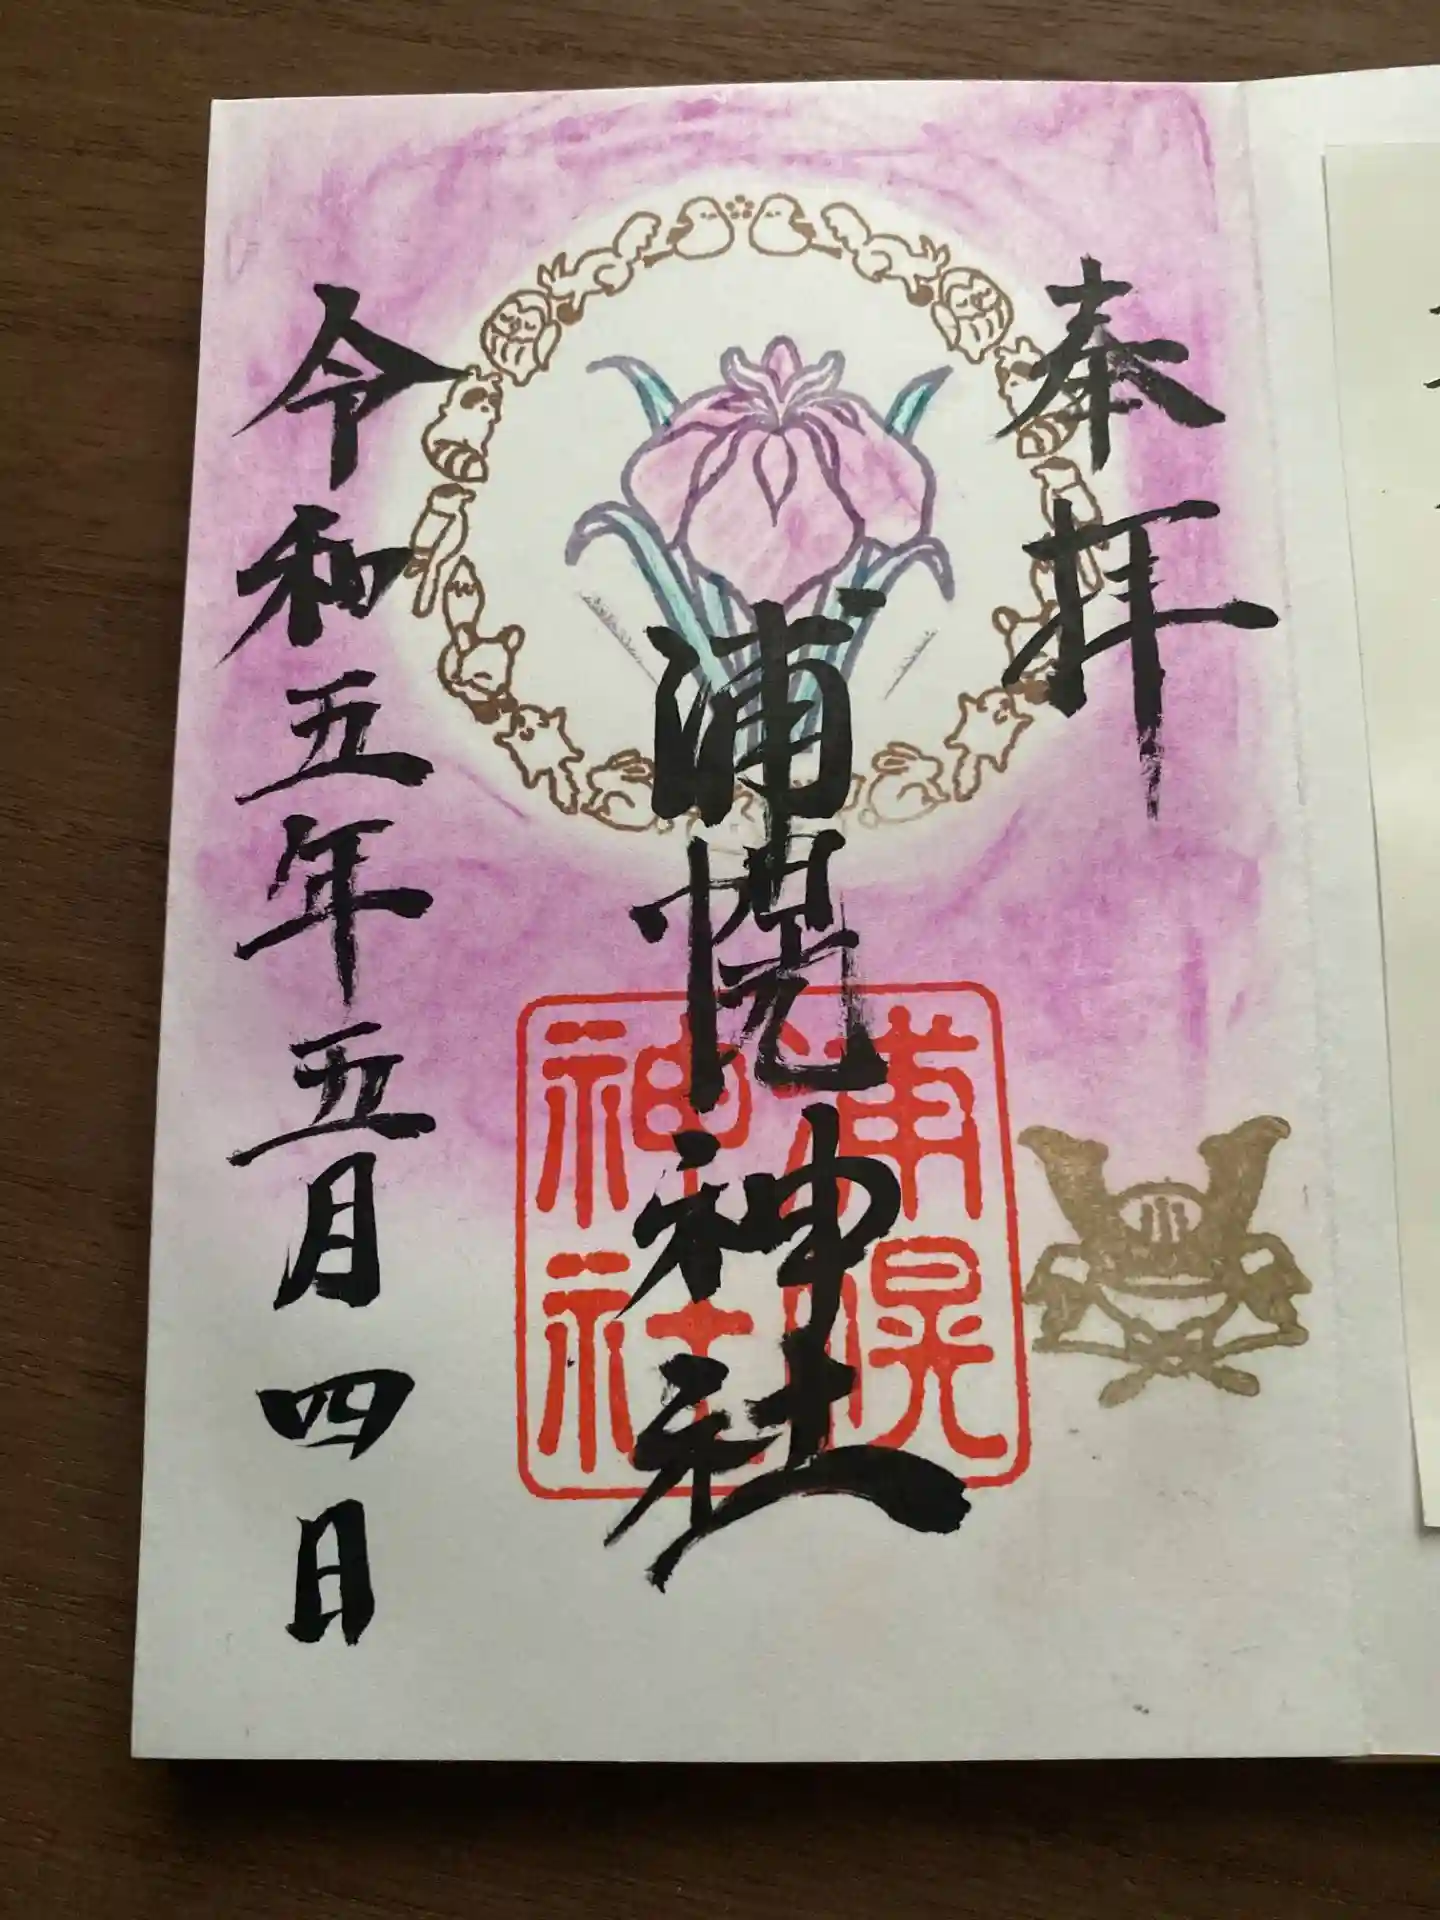 奉拝
浦幌神社
浦幌
神社
令和五年五月四日